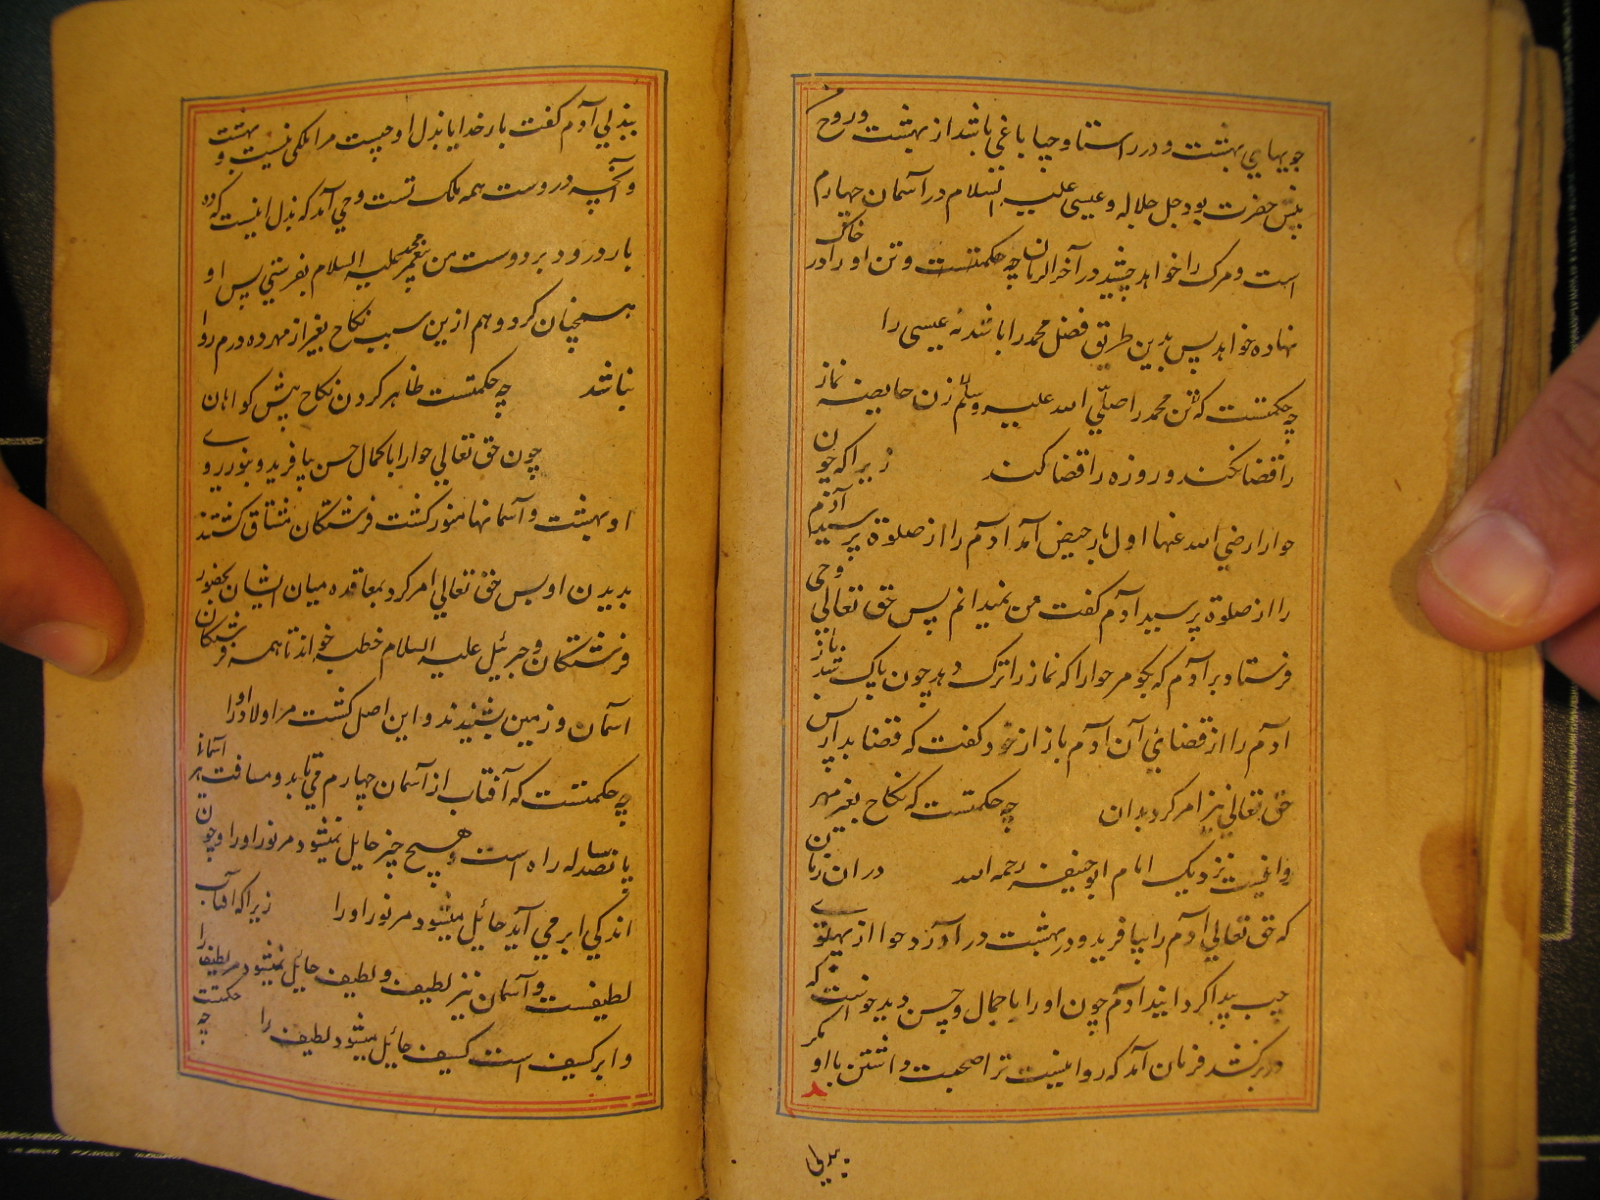 جویهای بهشت و در راستا و چپا باغی باشد از بهشت و روح
پیش حضرت بود جل جلاله و عیسی علیه السلام در آسمان چهارم
است و مرک را خواهد چشید در آخر الزمان چه حکمتست و تن او را در خاک
نهاده خواهد پس بدین طریق فضل محمد را باشد نه عیسی را
چه حکمتست که تن محمد را صلی الله علیه وسلم زن حایضه نماز
را قضا نکند و روزه را قضا کند زیراکه چون
حوا را رضی الله عنها اول بار حیض آمد آدم را از صلوة پرسید آدم
را از صلوة پرسید آدم کفت من نمیدانم پس حق تعالی وحی
فرستاد بر آدم که بکو مر حوا را که نماز را ترک دهد چون پاک شد باز
آدم را از قضای آن آدم باز از خود کفت که قضا بدار پس
حق تعالی نیز امر کرد بدان چه حکمتست که نکاح بغیر مهر
روا نیست نزدیک امام ابو حنیفه رحمه الله در آن زمان
که حق تعالی آدم را بیافرید و در بهشت در آورد و حوا از پهلوی
چپ پیدا کردانید آدم چون او را با جمال و حسن دید خواست که
در بر کشد فرمان آمد که روا نیست ترا صحبت داشتن با او مکر
ببدلی
ببدلی آدم کفت بار خدایا بدل او چیست مرا ملکی نیست بهشت و
و آنچه دروست همه ملک تست وحی آمد که بدل اینست که ده
بار درود بر دوست من پیغمبر محمد علیه السلام بفرستی پس او
همچنان کرد و هم ازین سبب نکاح بغیر از مهر ده درم روا
نباشد چه حکمتست ظاهر کردن نکاح پیش کواهان
چون حق تعالی حوا را با کمال حسن بیافرید و بنور روی
او بهشت و آسمانها منور کشت فرشتکان مشتاق کشتند
بدیدن او پس حق تعالی امر کرد بمعاقده میان ایشان بحضور
فرشتکان و جبرئیل علیه السلام خطبه خواند تا همه فرشتکان
آسمان و زمین بشنیدند و این اصل کشت مر اولاد او را
چه حکمتست که آفتاب از آسمان چهارم می تابد و مسافت هر آسمان
پانصد ساله راه است و هیچ چیز حایل نمیشود مر نور او را و چون
اندکی ابر می آید حائل میشود مر نور او را زیراکه آفتاب
لطیفست و آسمان نیز لطیف و لطیف حایل نمیشود مر لطیف را
و ابر کسیف است کسیف حائل میشود لطیف را چه حکمتست